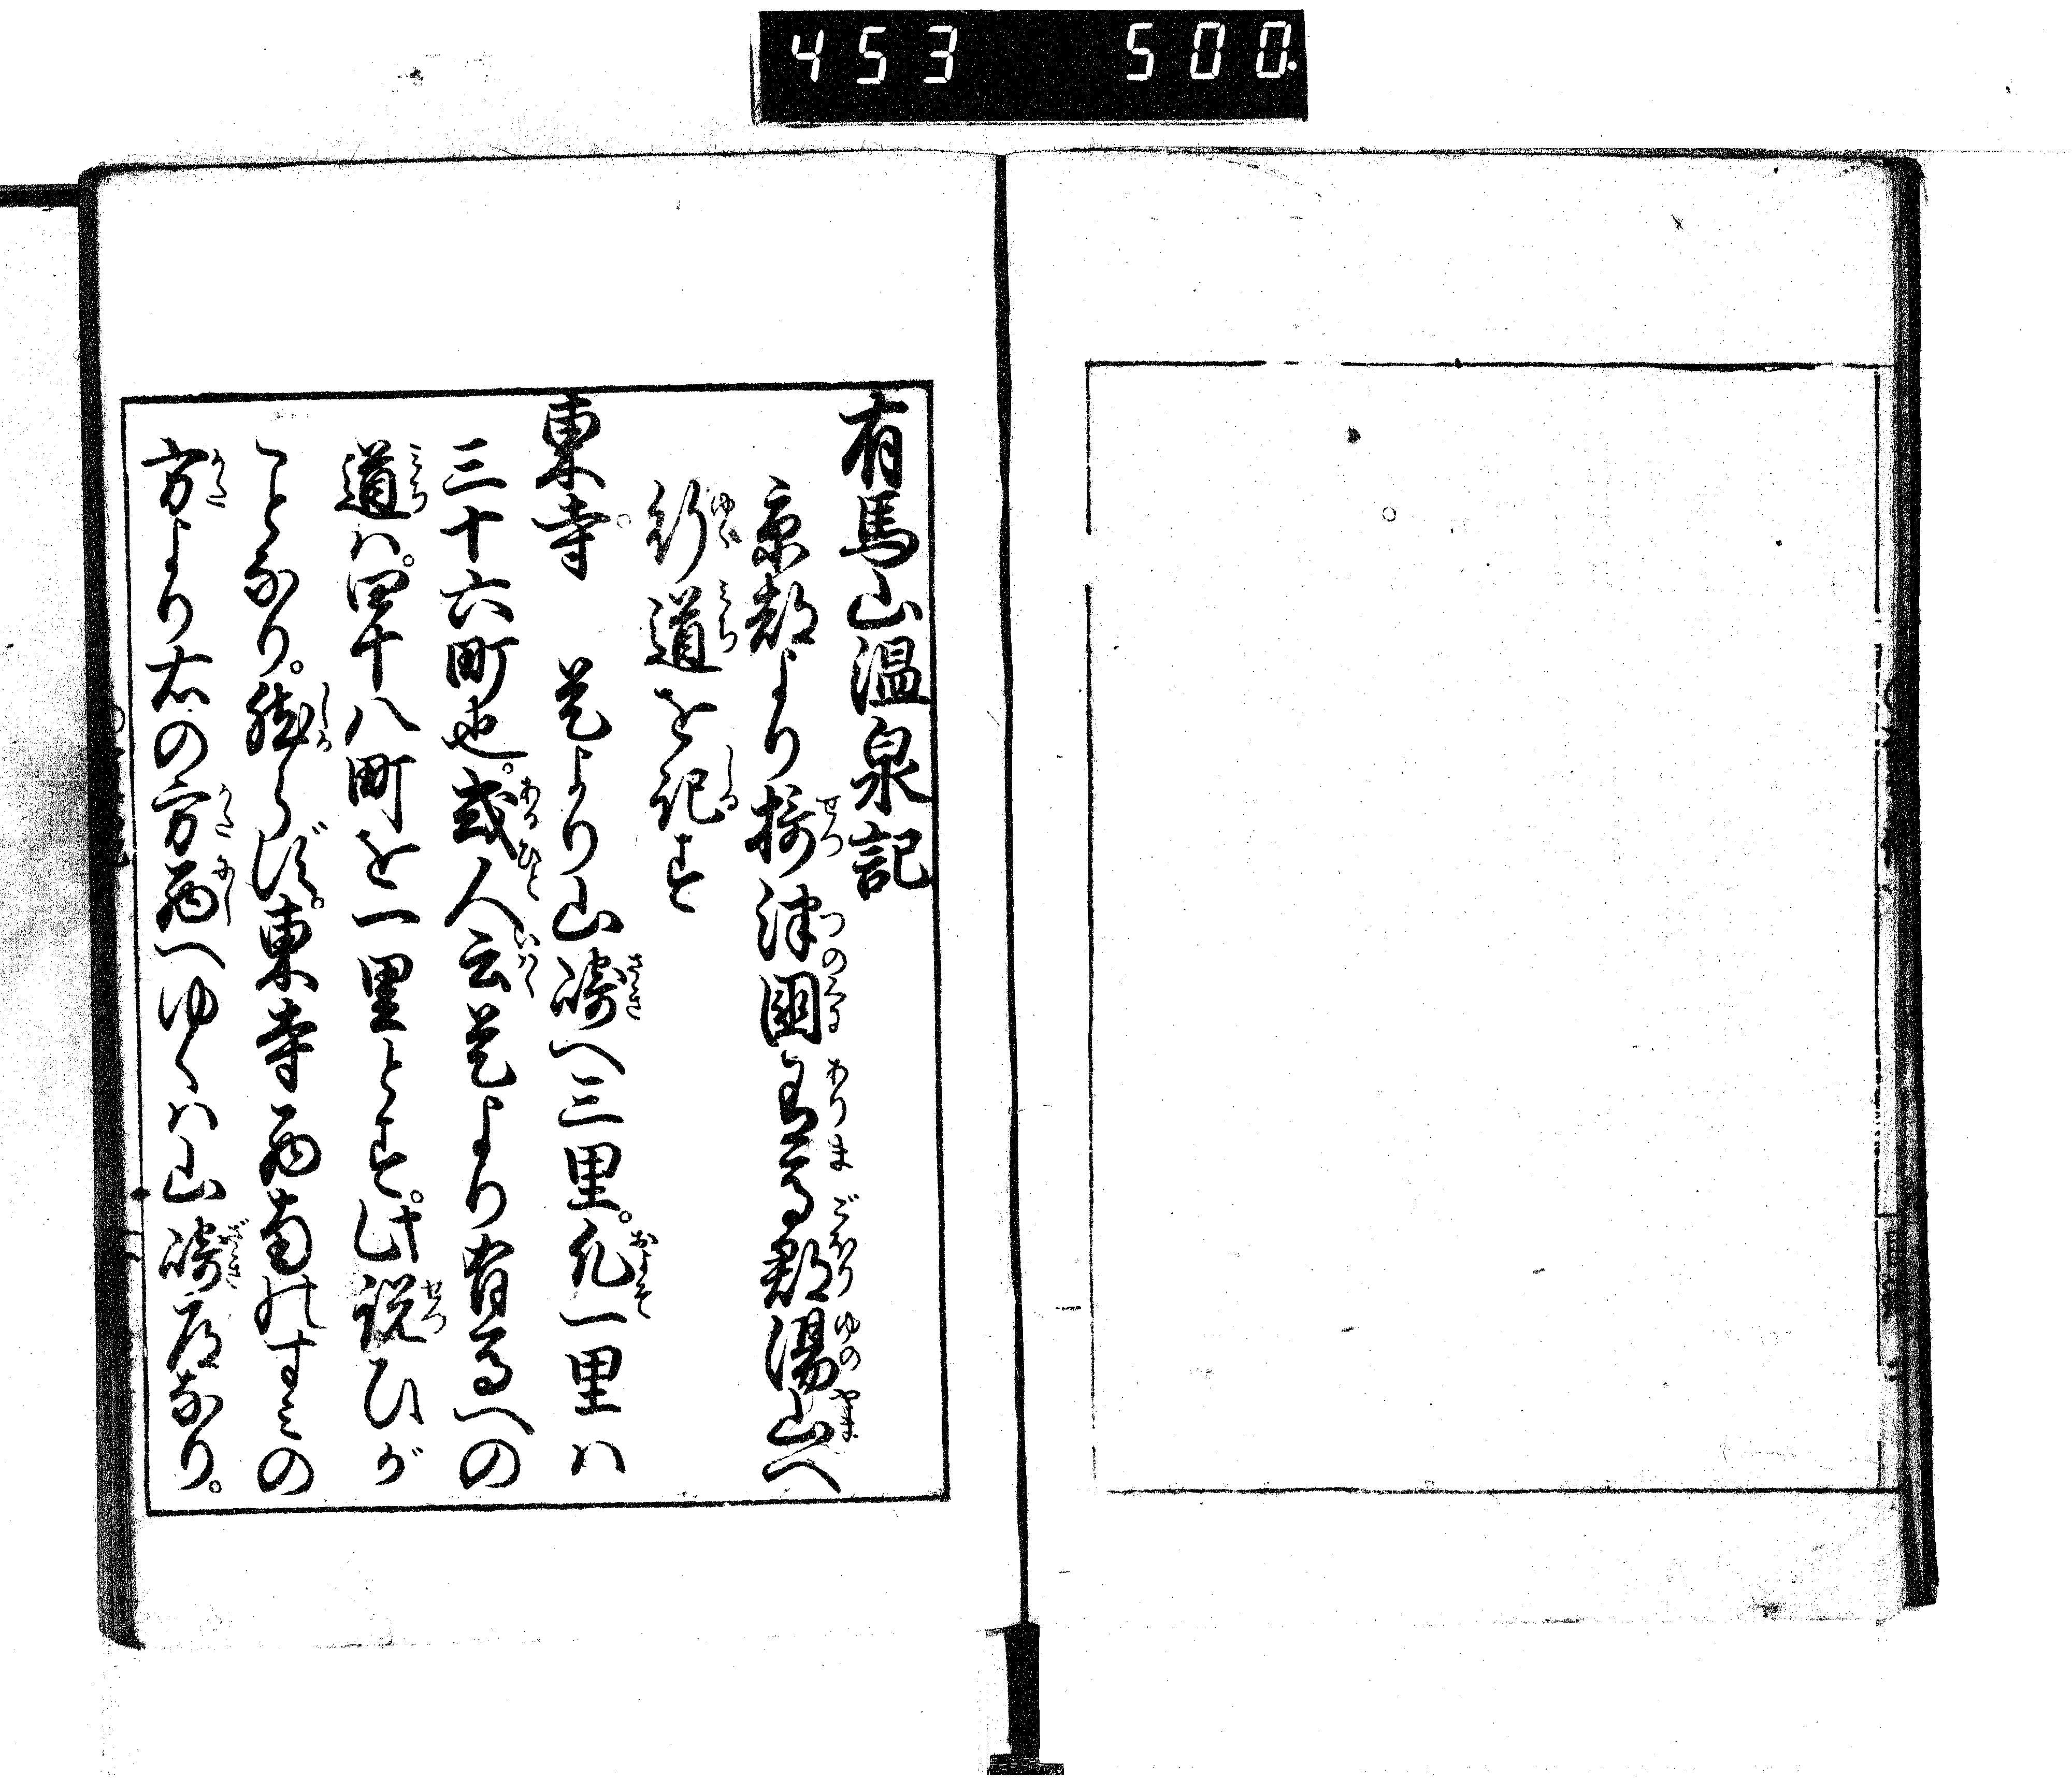 453 500.
有馬山温泉記
京都より摂津国有馬郡湯山へ
行道を記す
東寺 是より山崎へ三里。凡一里ハ
三十六町也。或人云是より有馬への
道ハ。四十八町を一里とす。此説ひが
ことなり。然らず。東寺西南のすミの
方より右の方西へゆくハ山崎道なり。